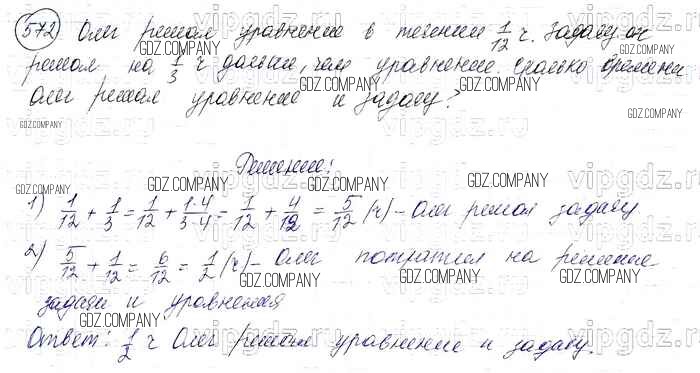 572 Олег решал уравнение в течении 1/12 ч. Задачу он
решал на 1/3 ч дальше, чем уравнение. Сколько времени
Олег решал уравнение и задачу?
Решение:
1) 1/12 + 1/3 = 1/12 + 1·4/3·4 = 1/12 + 4/12 = 5/12 (ч) - Олег решал задачу
2) 5/12 + 1/12 = 6/12 = 1/2 (ч) - Олег потратил на решение
задачи и уравнения
Ответ: 1/2 ч Олег решал уравнение и задачу.
GDZ.COMPANY
vipgdz.ru